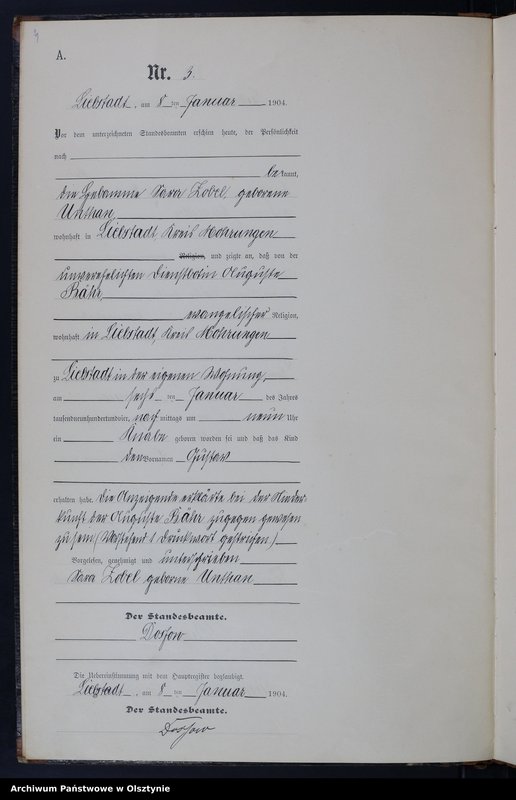 4
A.
Nr. 3.
Liebstadt, am 8ten Januar 1904.
Vor dem unterzeichneten Standesbeamten erschien heute, der Persönlichkeit
nach
bekannt,
die Hebamme Sara Zobel, geborene
Unthan,
wohnhaft in Liebstadt, Kreis Mohrungen
Religion, und zeigte an, daß von der
unverehelichten Dienstbotin Auguste
Bähr,
evangelischer Religion,
wohnhaft in Liebstadt, Kreis Mohrungen
zu Liebstadt in der eigenen Wohnung,
am sechsten Januar des Jahres
tausendneunhundertundvier, nachmittags um neun Uhr
ein Knabe geboren worden sei und daß das Kind
den Vornamen Gustav
erhalten habe. Die Anzeigende erklärte bei der Nieder-
kunft der Auguste Bähr zugegen gewesen
zu sein (Vorstehend 1 Druckwort gestrichen)
Vorgelesen, genehmigt und unterschrieben
Sara Zobel geborne Unthan
Der Standesbeamte.
Dossow
Die Uebereinstimmung mit dem Hauptregister beglaubigt.
Liebstadt, am 8ten Januar 1904.
Der Standesbeamte.
Dossow
Archiwum Państwowe w Olsztynie